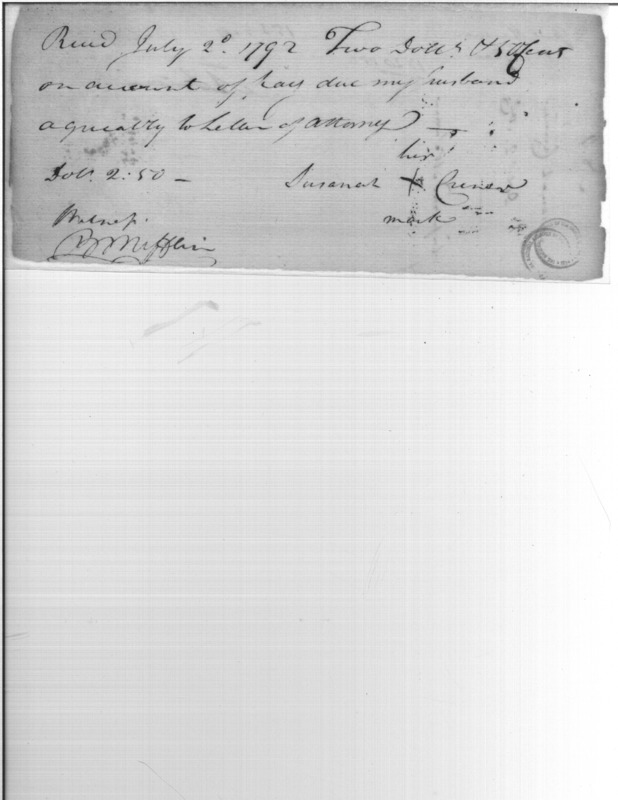 Recd July 2d. 1792 Two Dolls. & 50 Cent
on account of pay due my husband
agreeably to letter of attorney
her
Doll. 2:50 – Susanah X
mark
Witness.
Mifflin